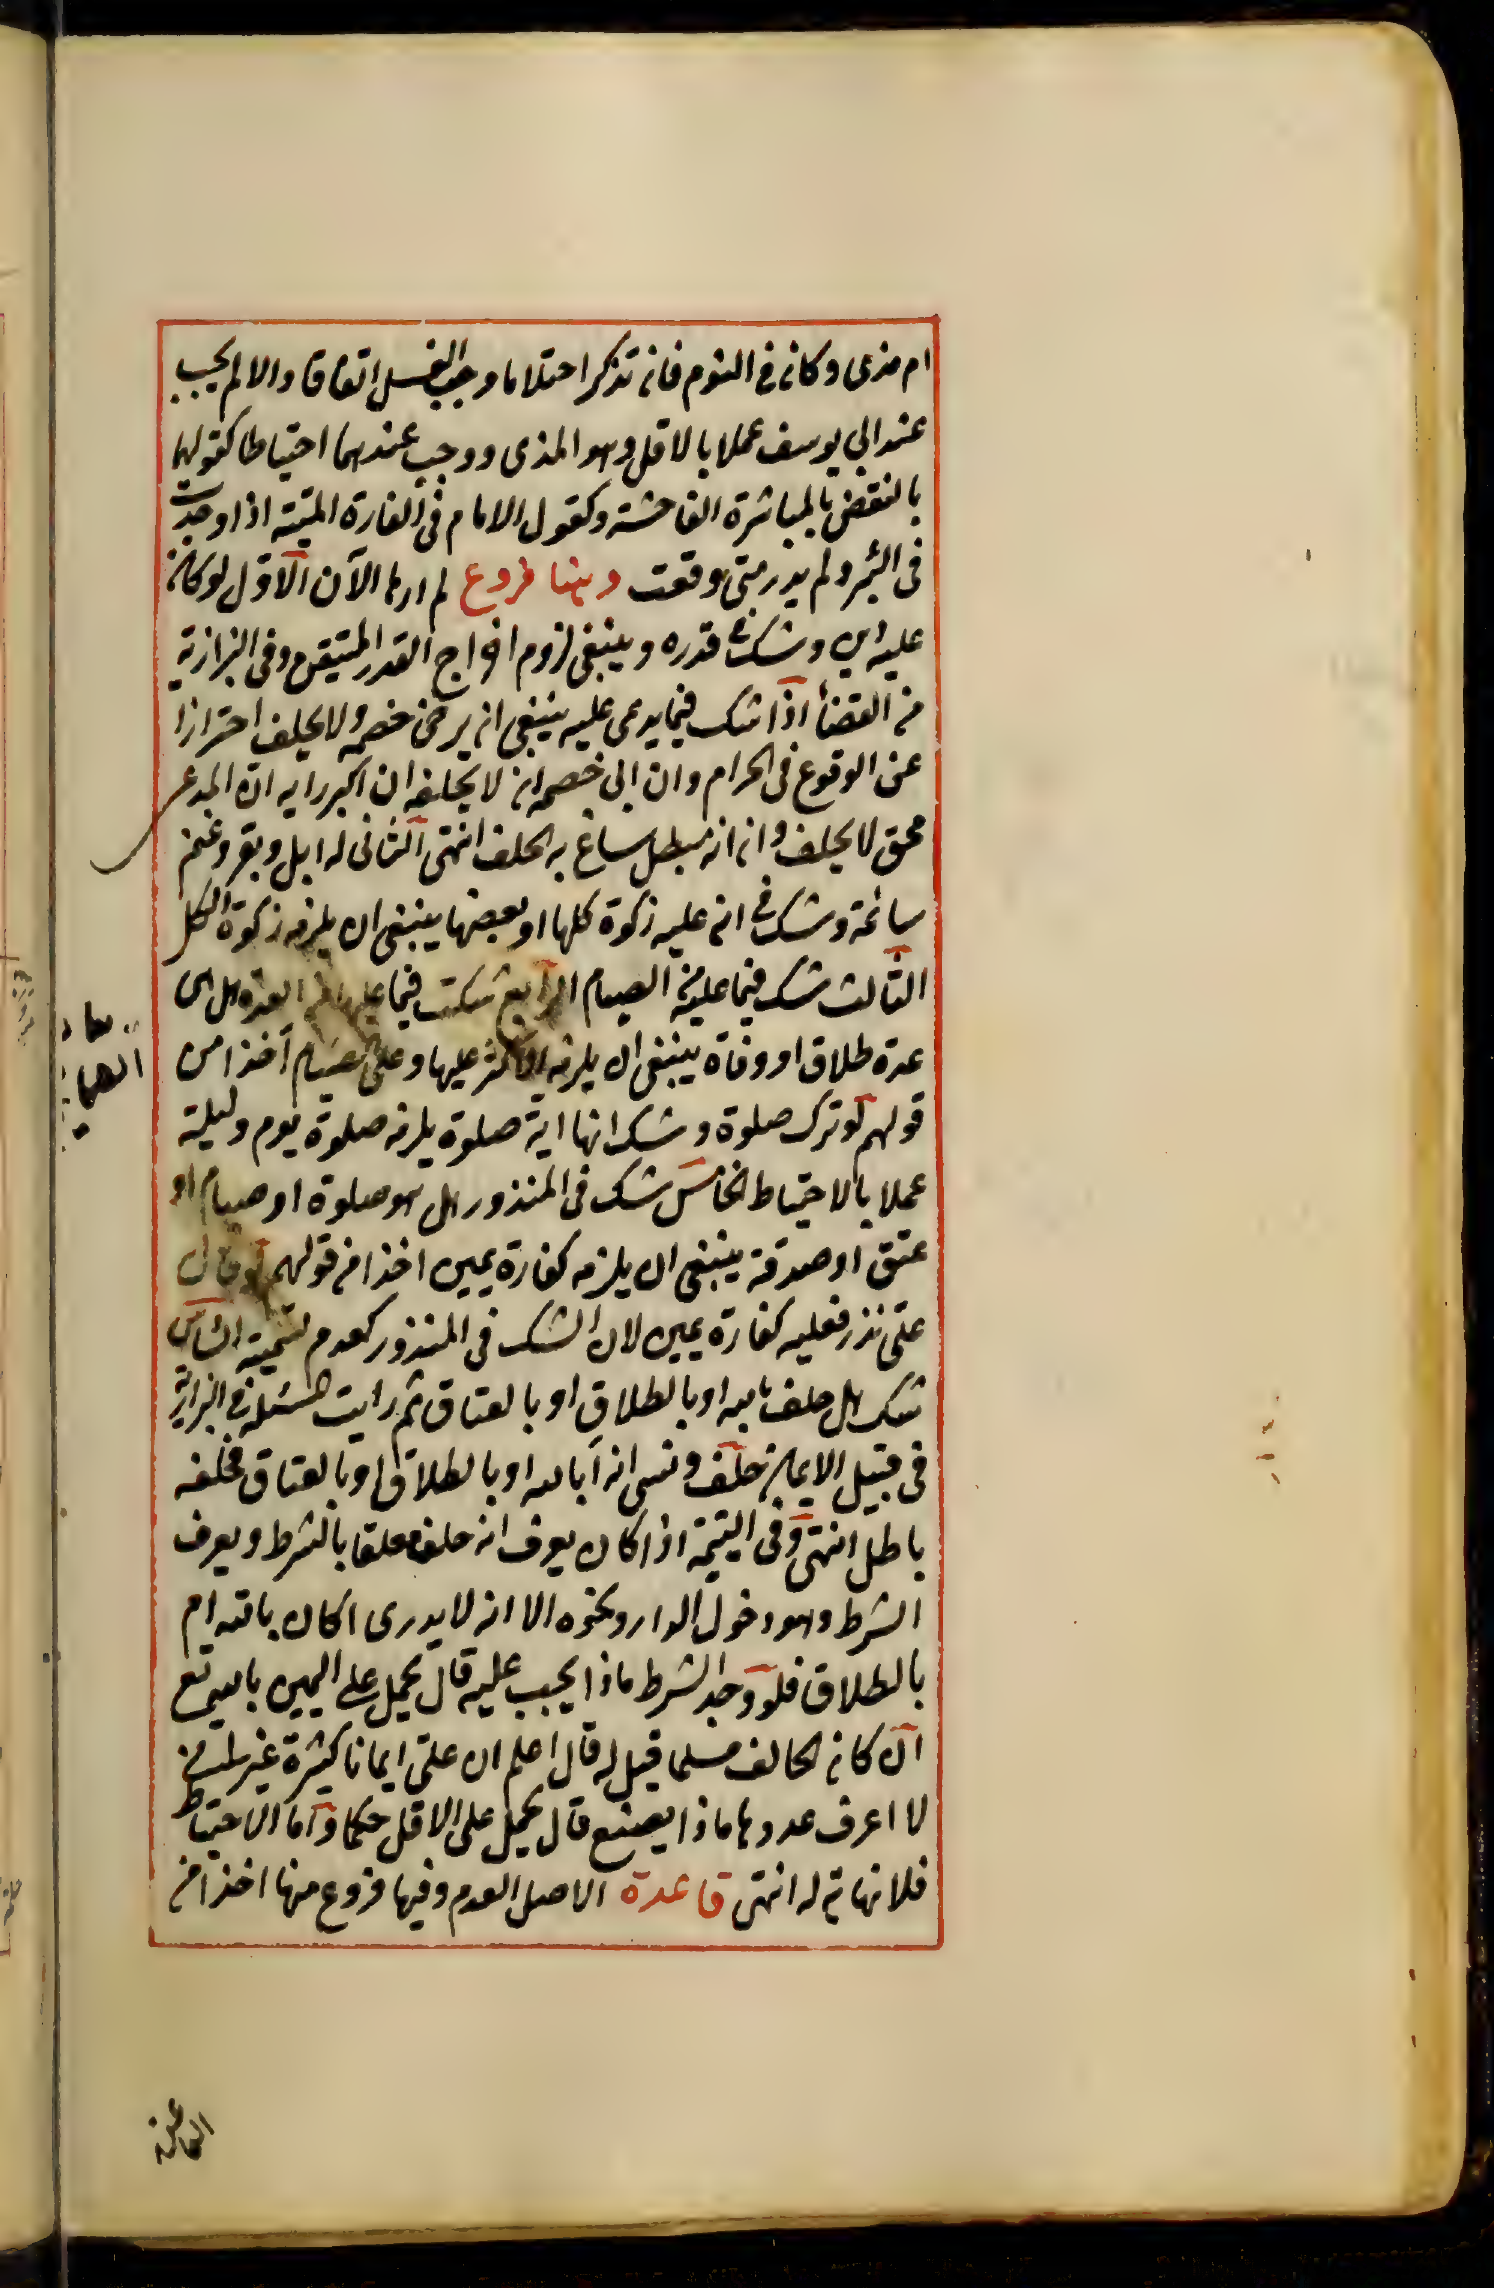 ام مذى وكان فى النوم فان تذكر احتلاما وجب الغسل اتفاقا والا لم يجب
عند ابى يوسف عملا بالاقل وهو المذى ووجب عندهما احتياطا كقولهما
بالنقض بالمباشرة الفاحشة وكقول الامام فى الفارة الميتة اذا وجدت
فى البئر ولم يدر متى وقعت وهنا فروع لم ارها الآن الاول لو كان
عليه دين وشك فى قدره وينبغى لزوم اخراج القدر المتيقن وفى البزازية
من القضأ اذا شك فيما يدعى عليه ينبغى ان يرضى خصمه ولا يحلف احترازا
عن الوقوع فى الحرام وان ابى خصمه ان لا يحلفه ان اكبر رايه ان المدعى
محق لا يحلف وان انه مبطل ساغ به الحلف انتهى الثانى له ابل وبقر وغنم
سائمة وشك فى ان عليه زكوة كلها او بعضها ينبغى ان يلزمه زكوة الكل
الثالث شك فيما عليه من الصيام الرابع شكت فيما عليها من العدة هل هى
عدة طلاق او وفاة ينبغى ان يلزم الاكثر عليها وعلى الصيام آخذا من
قولهم لو ترك صلوة وشك انها اية صلوة يلزمه صلوة يوم وليلة
عملا بالاحتياط الخامس شك فى المنذور هل هو صلوة او صيام او
عتق او صدقة ينبغى ان يلزمه كفارة يمين اخذا من قولهم لو قال
على نذر فعليه كفارة يمين لان الشك فى المنذور كعدم تسميته السادس
شك هل حلف بالله او بالطلاق او بالعتاق ثم رايت المسئلة فى البزازية
فى قبيل الايمان حلف ونسى انه أبالله او بالطلاق او بالعتاق فحلفه
باطل انتهى وفى اليتيمة اذا كان يعرف انه حلف معلقا بالشرط ويعرف
الشرط وهو دخول الدار ونحوه الا انه لا يدرى اكان بالله ام
بالطلاق فلو وجد الشرط ماذا يجب عليه قال يحمل على اليمين بالله تع
ان كان الحالف مسلما قيل له قال اعلم ان على ايمانا كثيرة غير انى
لا اعرف عددها ماذا يصنع قال يحمل على الاقل حكما واما الاحتياط
فلا نهاية له انتهى قاعدة الاصل العدم وفيها فروع منها اخذا من